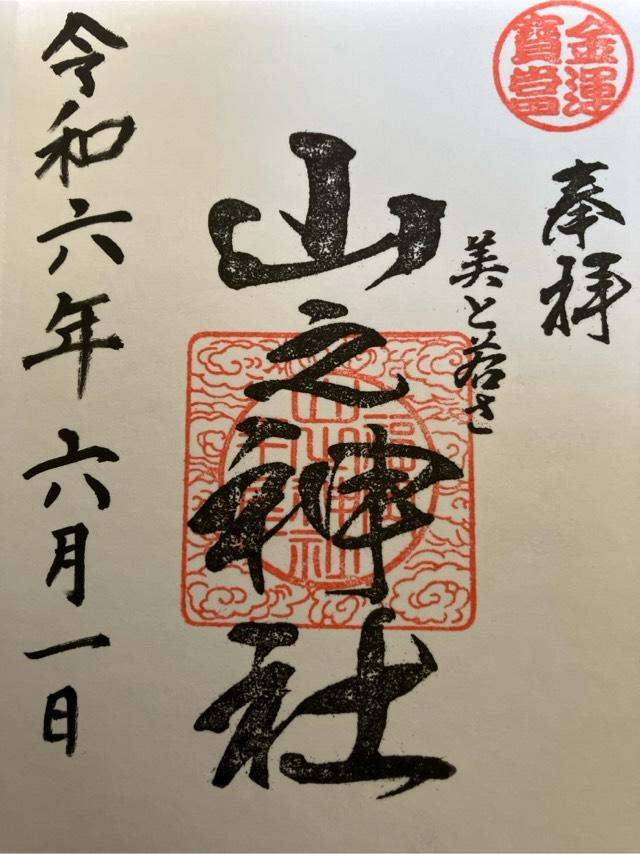 金運
寳當
奉拝
美と若さ
山之神社
令和六年六月一日